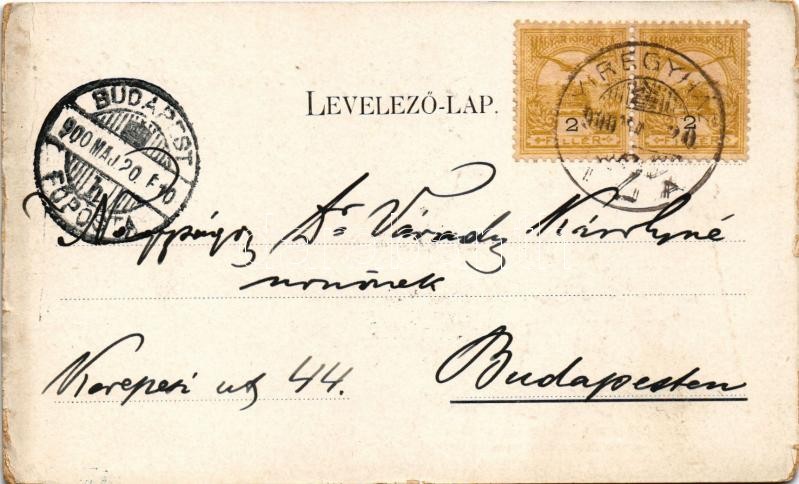 MAGYAR KIR. POSTA MAGYAR KIR. POSTA
2 2
FILLÉR FILLÉR
BUDAPEST
900 MÁJ. 20. F. 10
FŐPOSTA
LEVELEZŐ-LAP.
Nagyságos Dr Várady Károlyné
urnőnek
Kerepesi ut 44.
Budapesten